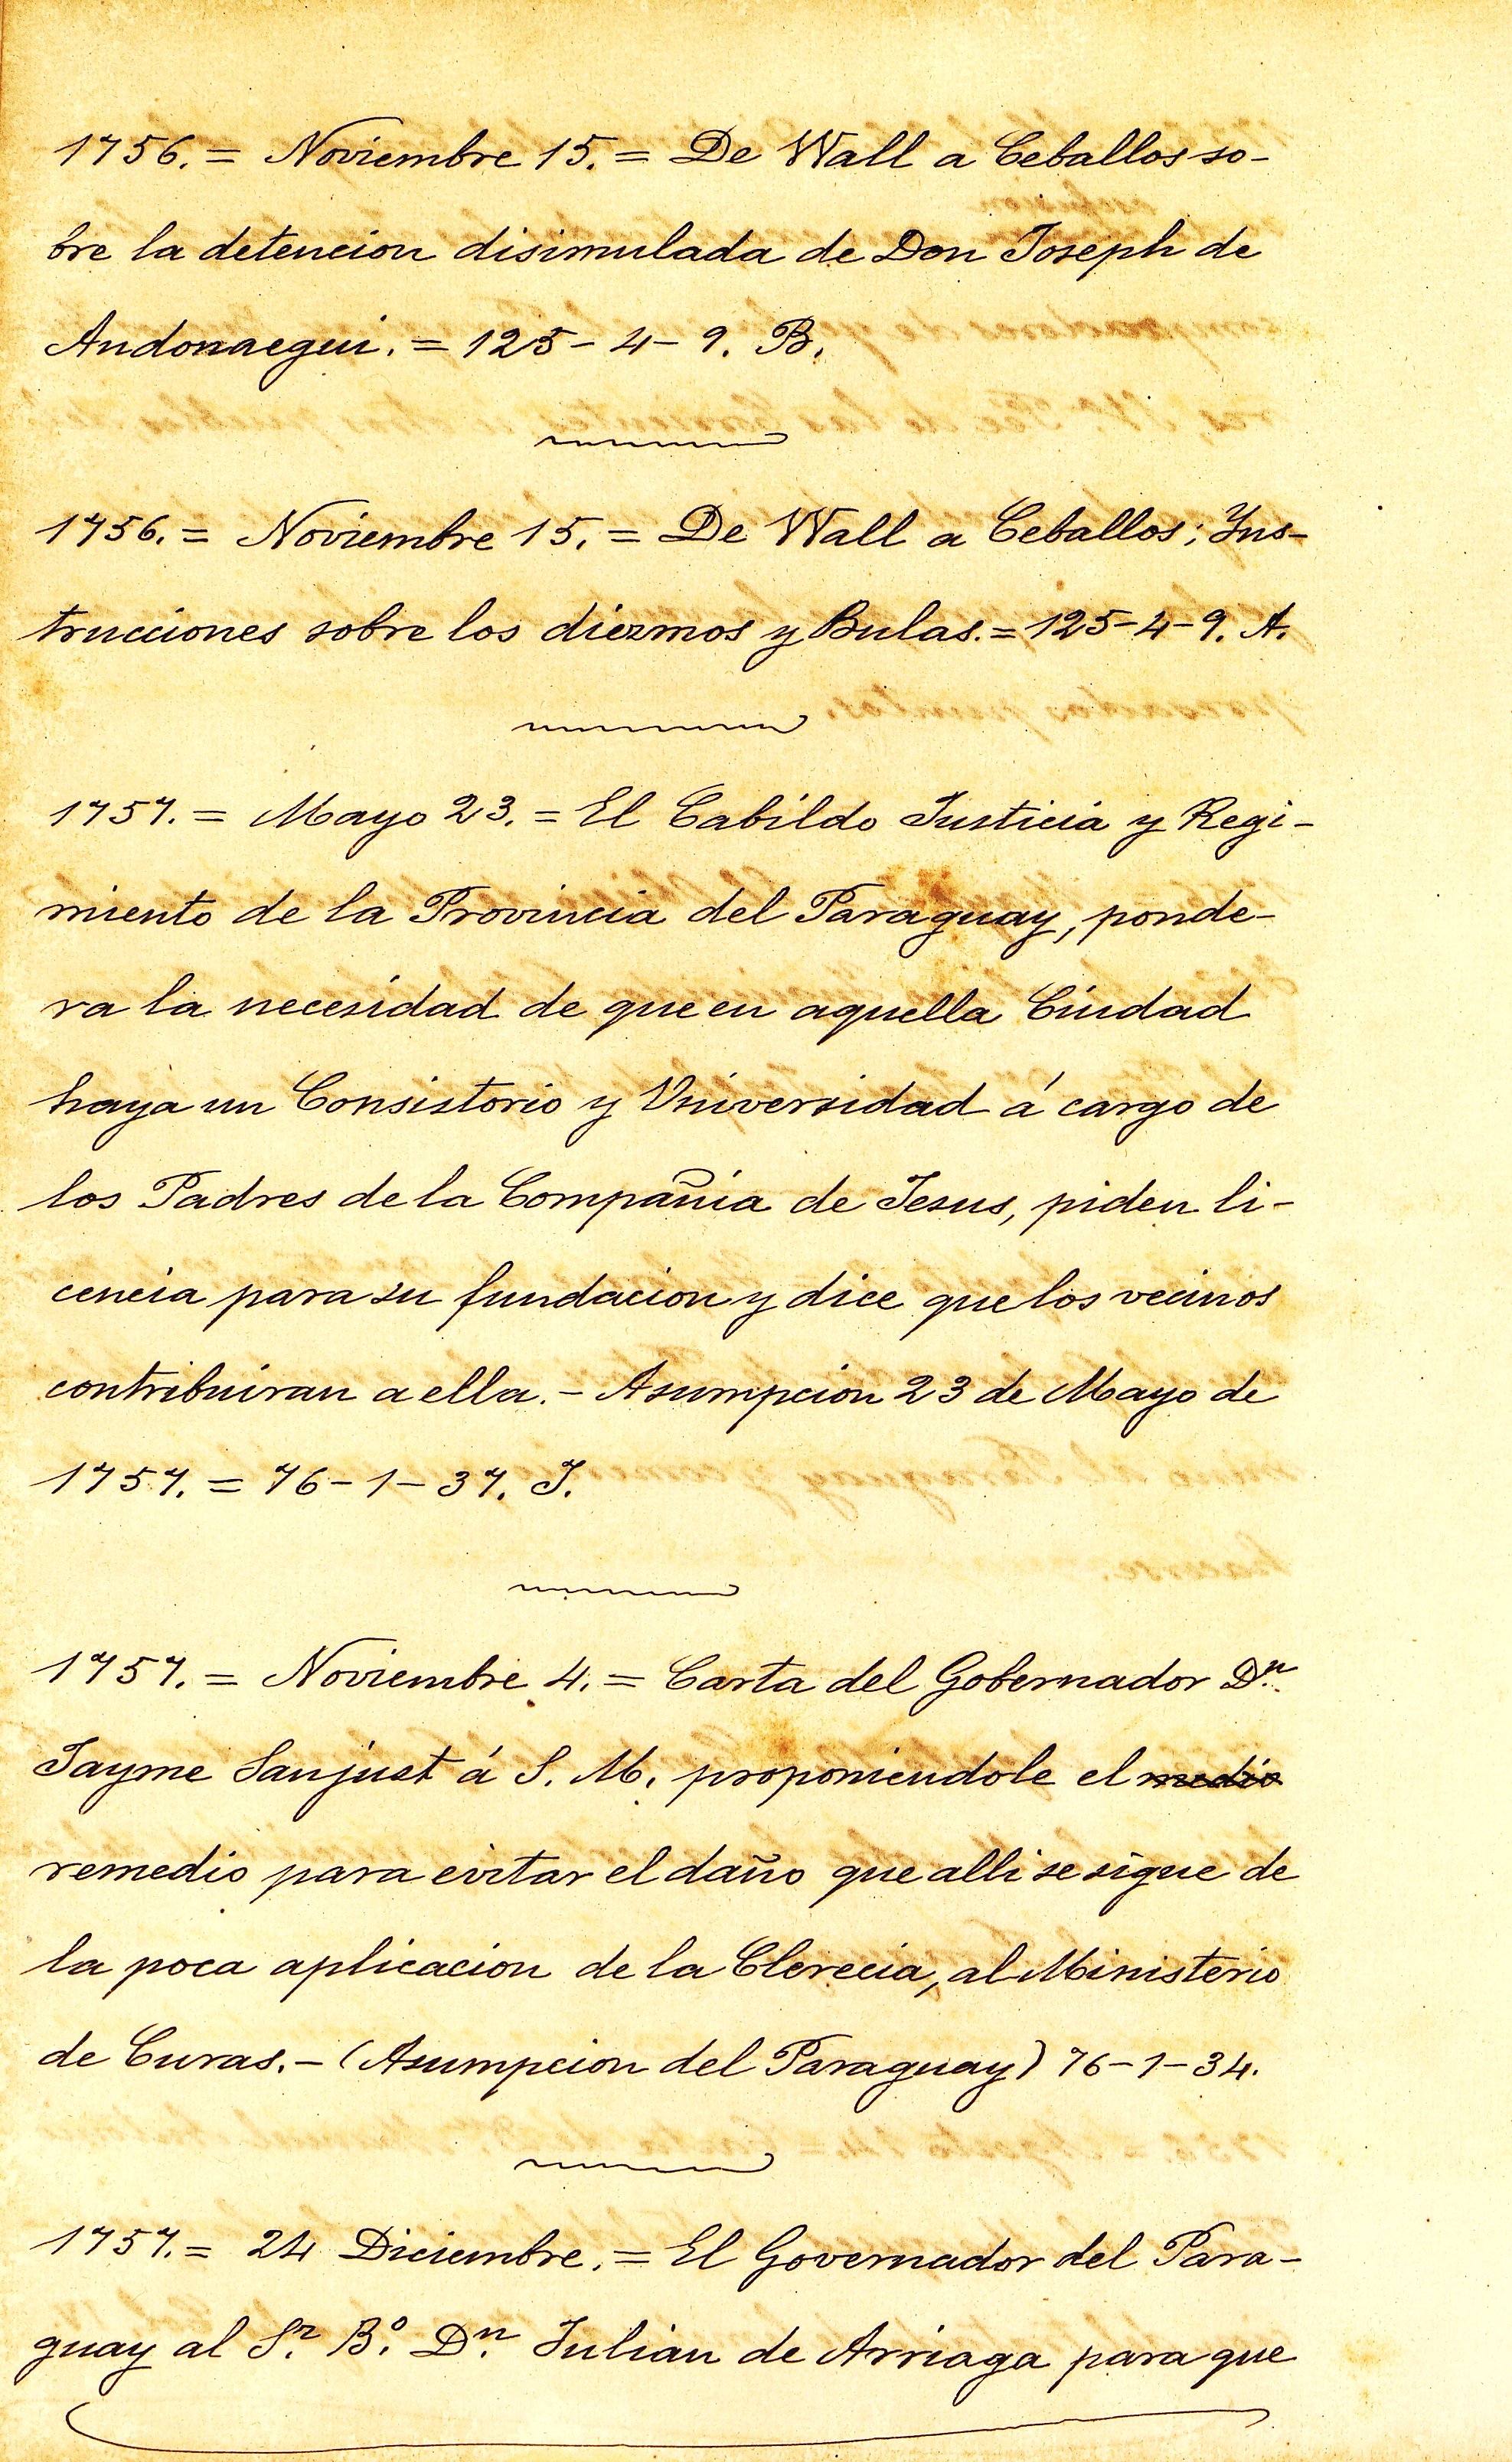 1756. = Noviembre 15. = De Wall a Ceballos so-
bre la detencion disimulada de Don Joseph de
Andonaegui. = 125-4-9. B.
1756. = Noviembre 15. = De Wall a Ceballos; Ins-
trucciones sobre los diezmos y Bulas. = 125-4-9. A.
1757. = Mayo 23. = El Cabildo Justicia y Regi-
miento de la Provincia del Paraguay, ponde-
ra la necesidad de que en aquella Ciudad
haya un Consistorio y Universidad á cargo de
los Padres de la Compañia de Jesus, piden li-
cencia para su fundacion y dice que los vecinos
contribuiran a ella. - Asumpcion 23 de Mayo de
1757. = 76-1-37. J.
1757. = Noviembre 4. = Carta del Gobernador Dn.
Jayme Sanjust á S. M. proponiendole el medio
remedio para evitar el daño que alli se sigue de
la poca aplicacion de la Clerecia, al Ministerio
de Curas. - (Asumpcion del Paraguay) 76-1-34.
1757. = 24 Diciembre. = El Governador del Para-
guay al Sr. Bo. Dn. Julian de Arriaga para que